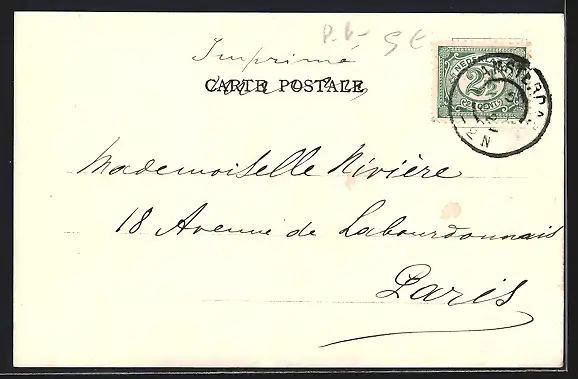 P.b- 5 E
Imprimé
CARTE POSTALE
NEDERLAND
2½
CENT
AMSTERDAM
Mademoiselle Rivière
18 Avenue de Labourdonnais
Paris